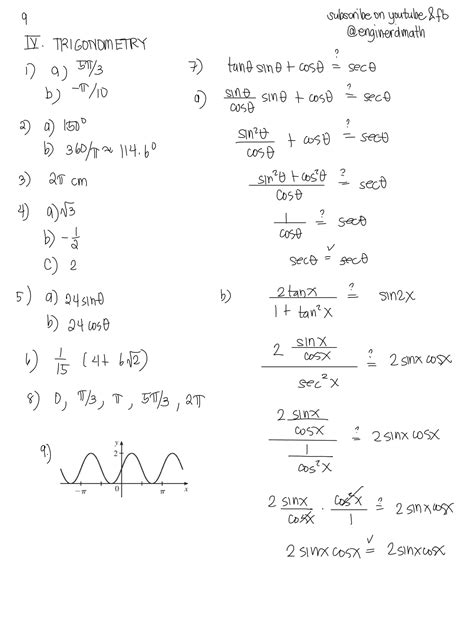 9
subscribe on youtube & fb
@enginerdmath
IV. TRIGONOMETRY
1) a) 5π/3
b) -π/10
2) a) 150°
b) 360/π ≈ 114.6°
3) 2π cm
4) a) √3
b) -1/2
c) 2
5) a) 24 sinθ
b) 24 cosθ
6) 1/15 (4 + 6√2)
8) 0, π/3, π, 5π/3, 2π
9)
y
2
-π 0 π x
7) tanθ sinθ + cosθ ?= secθ
a) sinθ/cosθ sinθ + cosθ ?= secθ
sin²θ/cosθ + cosθ ?= secθ
(sin²θ + cos²θ)/cosθ ?= secθ
1/cosθ ?= secθ
secθ ✓= secθ
b) 2tanx/(1 + tan²x) ?= sin2x
(2 sinx/cosx)/(sec²x) ?= 2 sinx cosx
(2 sinx/cosx)/(1/cos²x) ?= 2 sinx cosx
2 sinx/cosx · cos²x/1 ?= 2 sinx cosx
2 sinx cosx ✓= 2 sinx cosx